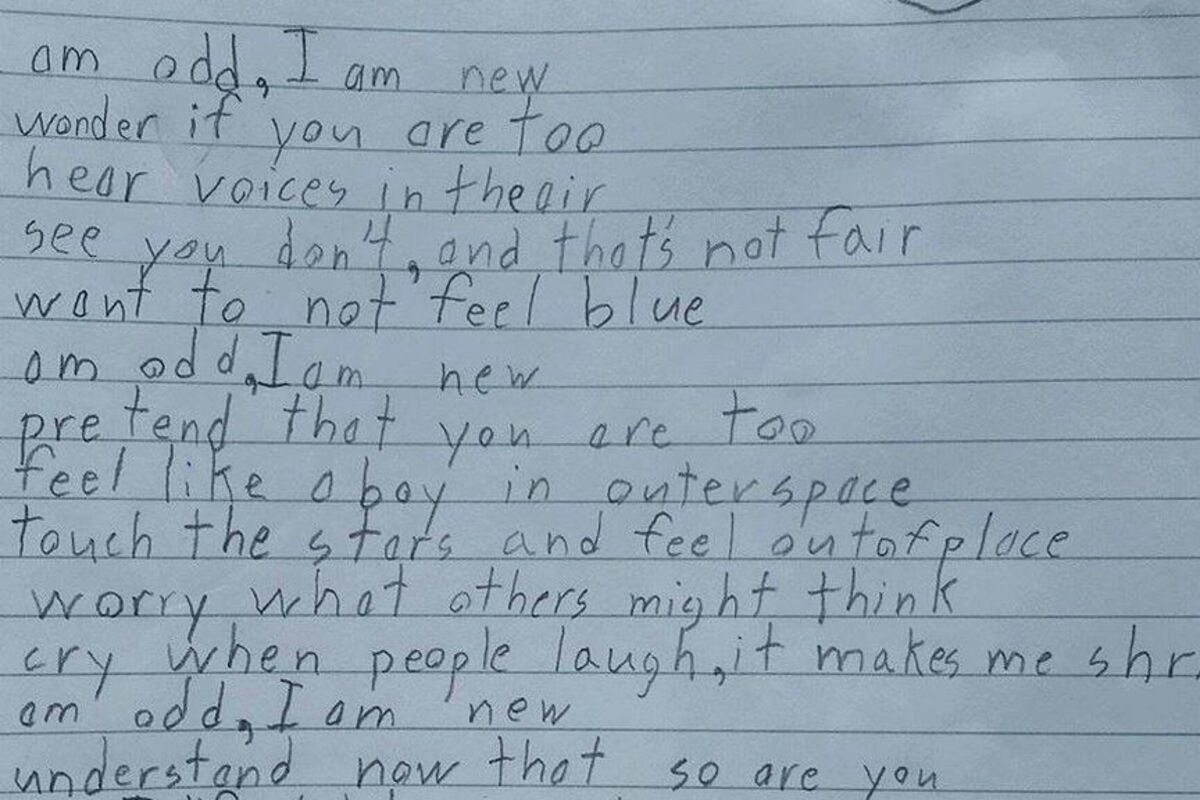 am odd, I am new
wonder if you are too
hear voices in the air
see you don't, and that's not fair
want to not feel blue
am odd, I am new
pretend that you are too
feel like a boy in outerspace
touch the stars and feel out of place
worry what others might think
cry when people laugh, it makes me shr
am odd, I am new
understand now that so are you